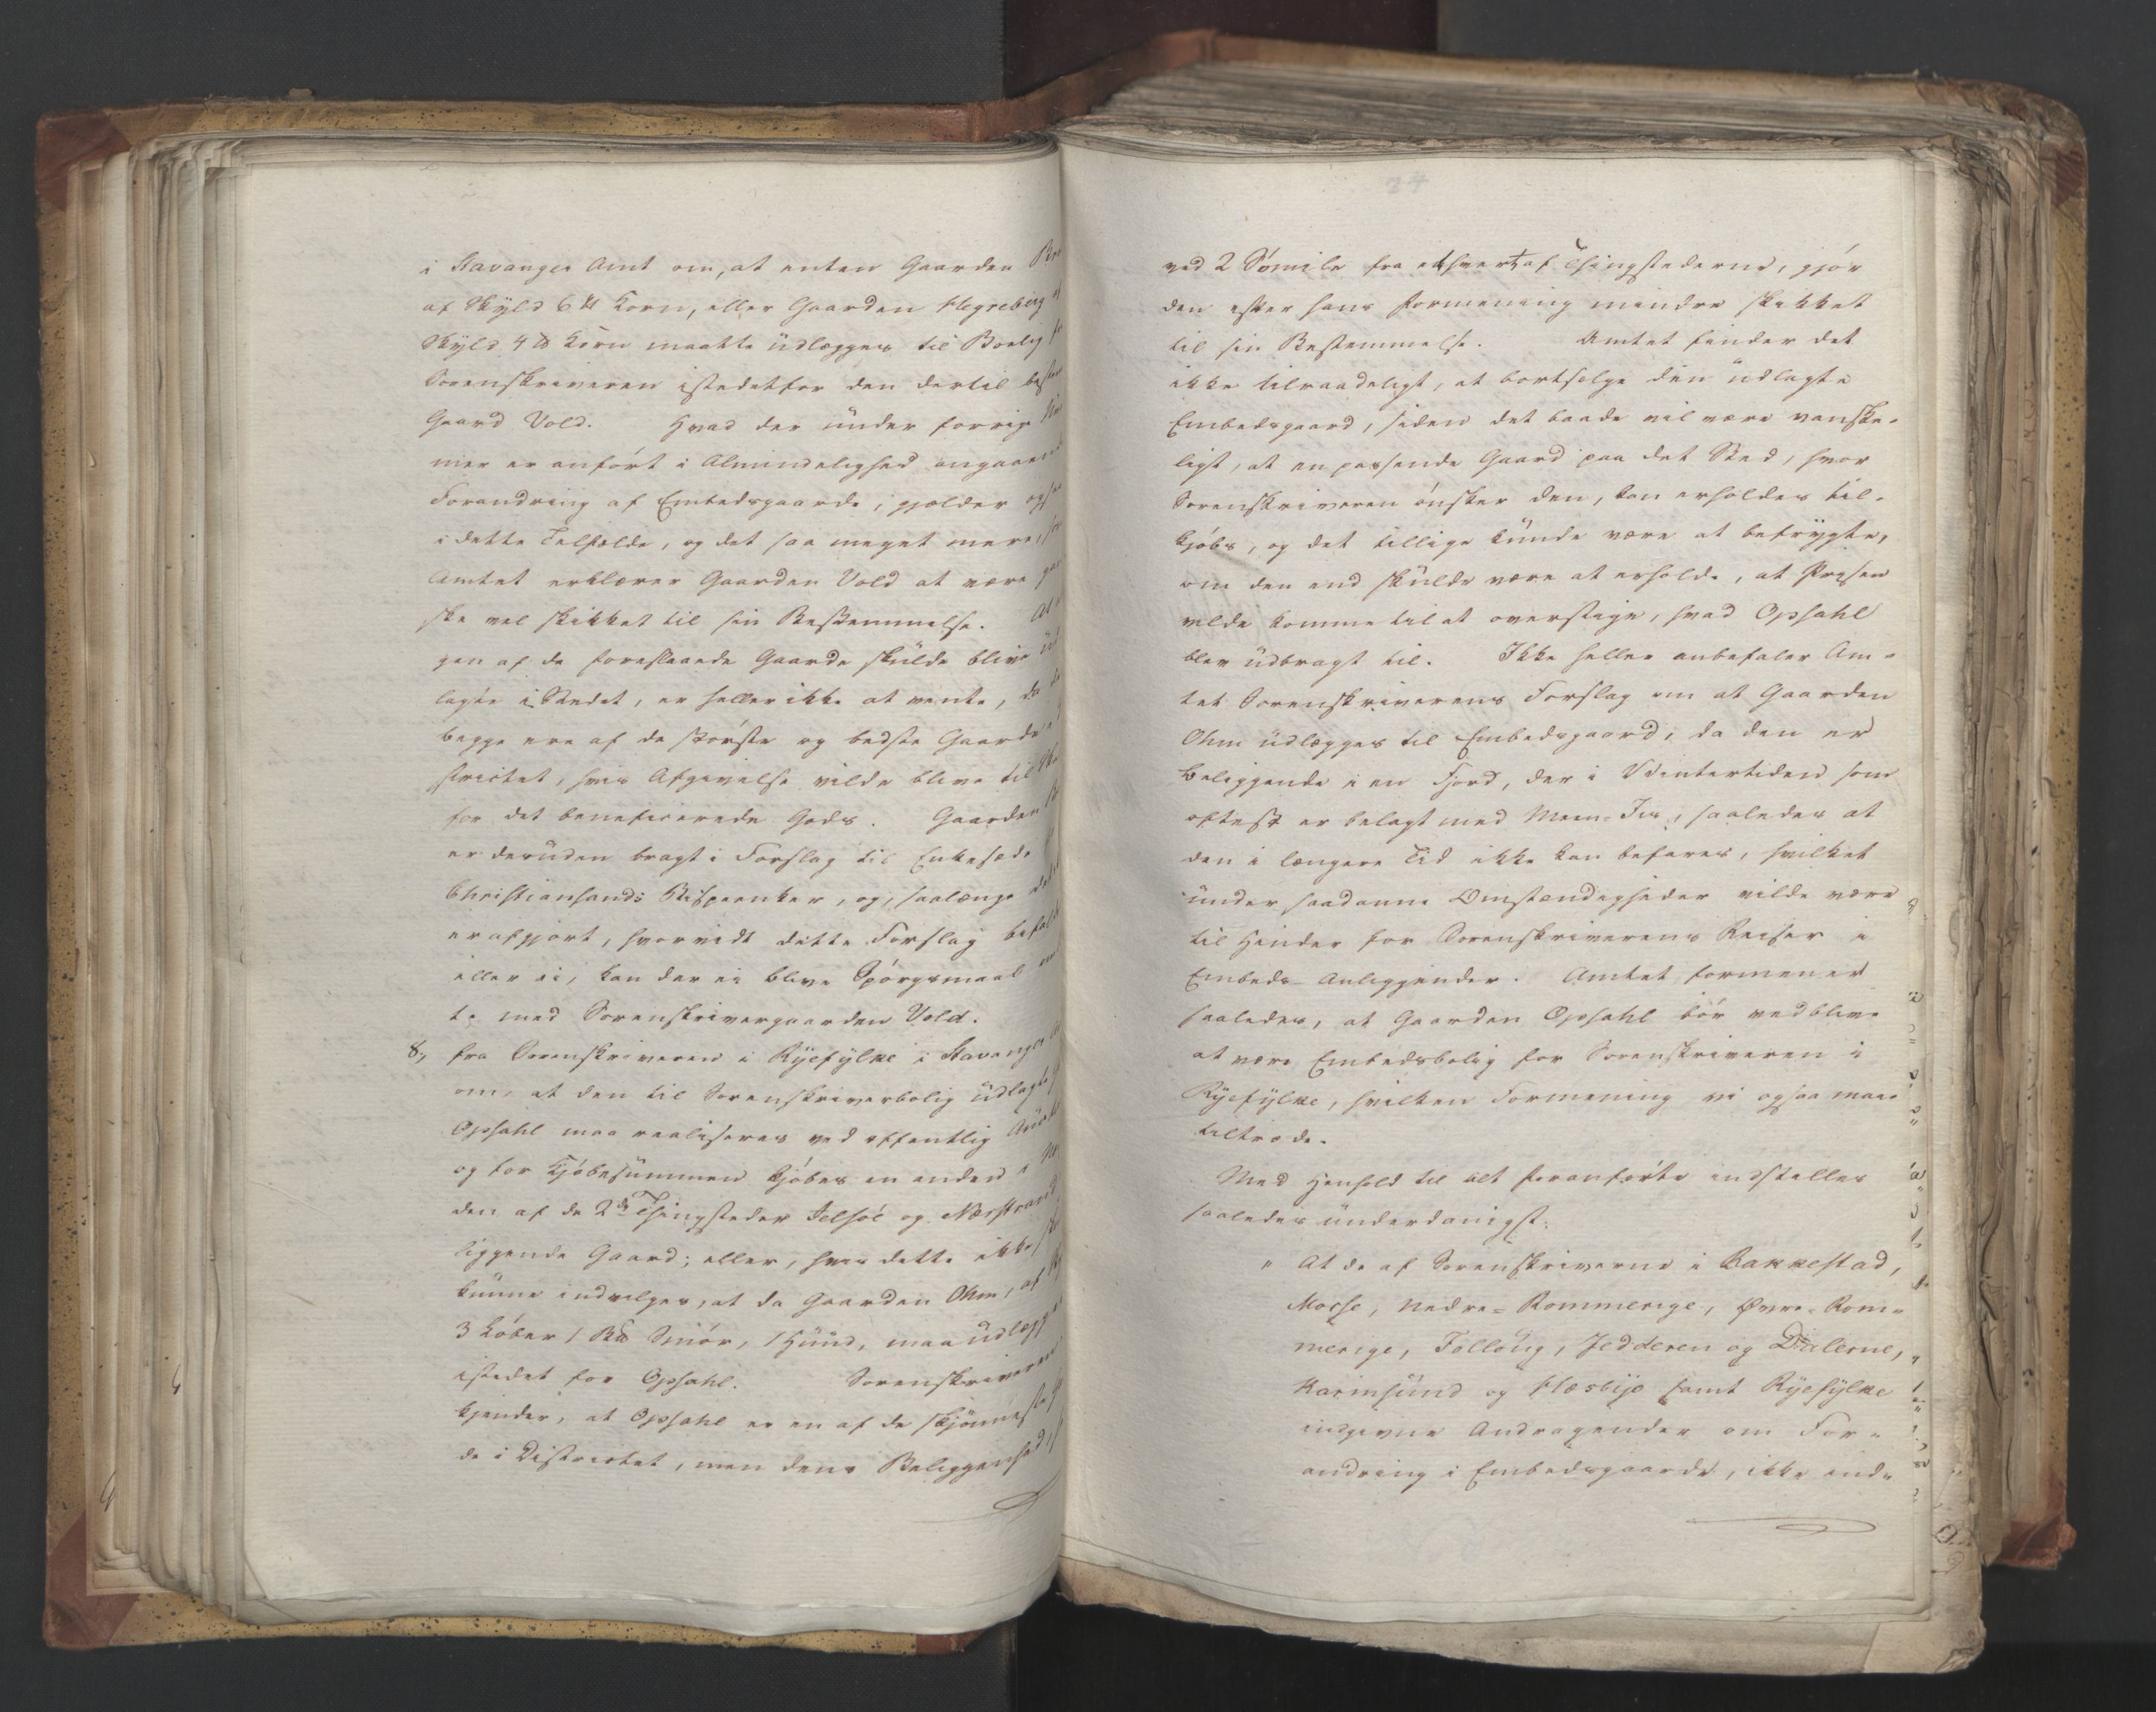 i Stavanger Amt om, at enten Gaarden
af Skyld 6 ℔ Korn, eller Gaarden Hegreberg af
Skyld 4 ℔ Korn maatte udlægges til Bolig for
Sorenskriveren istedetfor den dertil
Gaard Vold. Hvad der under forrige
mer er anført i Almindelighed angaaende
Forandring af Embedsgaarde, gjælder ogsaa
i dette Tilfælde, og det saa meget mere, som
Amtet erklærer Gaarden Vold at være
ske vel skikket til sin Bestemmelse. At
gen af de foreslaaede Gaarde skulde blive ud
lagte i Stedet, er heller ikke at vente, da de
begge ere af de største og bedste Gaarde
strictet, hvis Afgivelse vilde blive til
for det beneficerede Gods. Gaarden
er desuden bragt i Forslag til Enkesæde
Christiansands Bispeenker, og, saalænge
er afgjort, hvorvidt dette Forslag
eller ei, kan der ei blive Spørgsmaal om
te med Sorenskrivergaarden Vold.
8, fra Sorenskriveren i Ryefylke i Stavanger
om, at den til Sorenskriverbolig udlagte
Opsahl maa realiseres ved offentlig Auct
og for Kjøbesummen kjøbes en anden i
den af de 2de Thingsteder Jelsøe og Nærstrand
liggende Gaard; eller, hvis dette ikke
kunne indvilges, at da Gaarden Ohm, af
3 Løber 1 B℔ Smør, 1 Huud, maa udlægges
istedet for Opsahl. Sorenskriveren
kjender, at Opsahl er en af de skjønneste
de i Districtet, men dens Beliggenhed,
ved 2 Sømile fra ethvert af Thingstederne, gjør
den efter hans Formening mindre skikket
til sin Bestemmelse. Amtet finder det
ikke tilraadeligt, at bortselge den udlagte
Embedsgaard, siden det baade vil være vanske-
ligt, at en passende Gaard paa det Sted, hvor
Sorenskriveren ønsker den, kan erholdes til-
kjøbs, og det tillige kunde være at befrygte,
om den end skulde være at erholde, at Prisen
vilde komme til at overstige, hvad Opsahl
blev udbragt til. Ikke heller anbefaler Am-
tet Sorenskriverens Forslag om at Gaarden
Ohm udlægges til Embedsgaard, da den er
beliggende i en Fjord, der i Vintertiden som
oftest er belagt med Meen-Iis, saaledes at
den i længere Tid ikke kan befares, hvilket
under saadanne Omstændigheder vilde være
til Hinder for Sorenskriverens Reiser i
Embeds-Anliggender. Amtet formener
saaledes, at Gaarden Opsahl bør vedblive
at være Embedsbolig for Sorenskriveren i
Ryefylke, hvilken Formening vi ogsaa maae
tiltræde.
Med Henhold til alt foranførte indstilles
saaledes underdanigst:
" At de af Sorenskriverne i Bakkestad,
Mosse, Nedre-Rommerige, Øvre-Rom-
merige, Folloug, Jedderen og Dalerne,
Karmsund og Hæsbye samt Ryefylke
indgivne Andragender om For-
andring i Embedsgaarde, ikke ind-